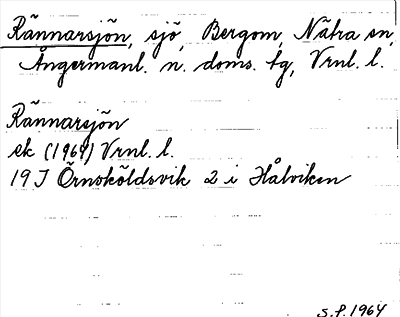 Rännarsjön, sjö, Bergom, Nätra sn,
Ångermanl. n. doms. tg, Vrnl. l.
Rännarsjön
ek (1964) Vrnl. l.
19 J Örnsköldsvik 2 i Hålviken
S.P. 1964